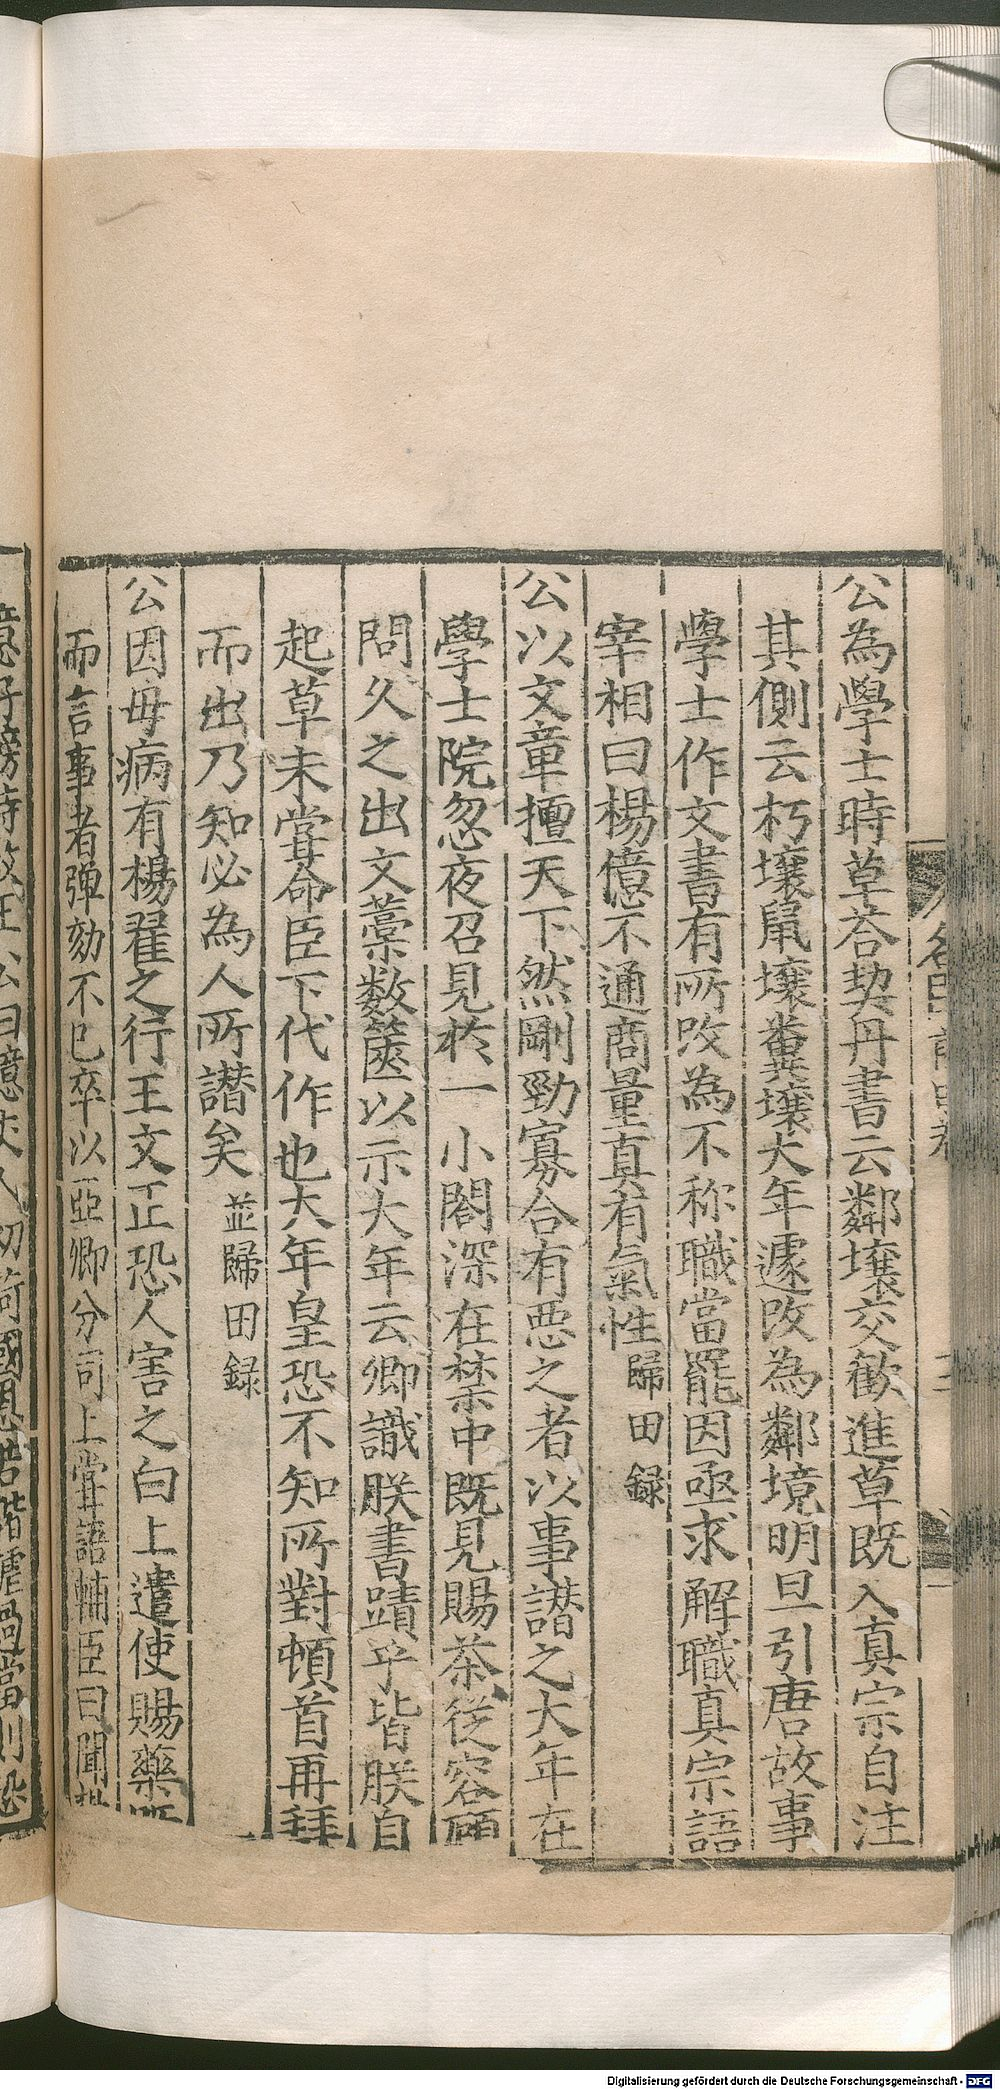 公為學士時草荅契丹書云鄰壤交歡進草既入真宗自注
其側云朽壤鼠壤糞壤大年遽改為鄰境明旦引唐故事
學士作文書有所改為不称職當罷因亟求解職真宗語
宰相曰楊億不通商量真有氣性歸田録
公以文章擅天下然剛勁寡合有惡之者以事譖之大年在
學士院忽夜召見於一小閤深在禁中既見賜茶從容顧
問久之出文藁數篋以示大年云卿識朕書蹟乎皆朕自
起草未嘗命臣下代作也大年皇恐不知所對頓首再拜
而出乃知必為人所譖矣並歸田録
公因毋病有楊翟之行王文正恐人害之白上遣使賜藥
而言事者彈劾不已卒以亞卿分司上嘗語輔臣曰聞
Digitalisierung gefördert durch die Deutsche Forschungsgemeinschaft - DFG